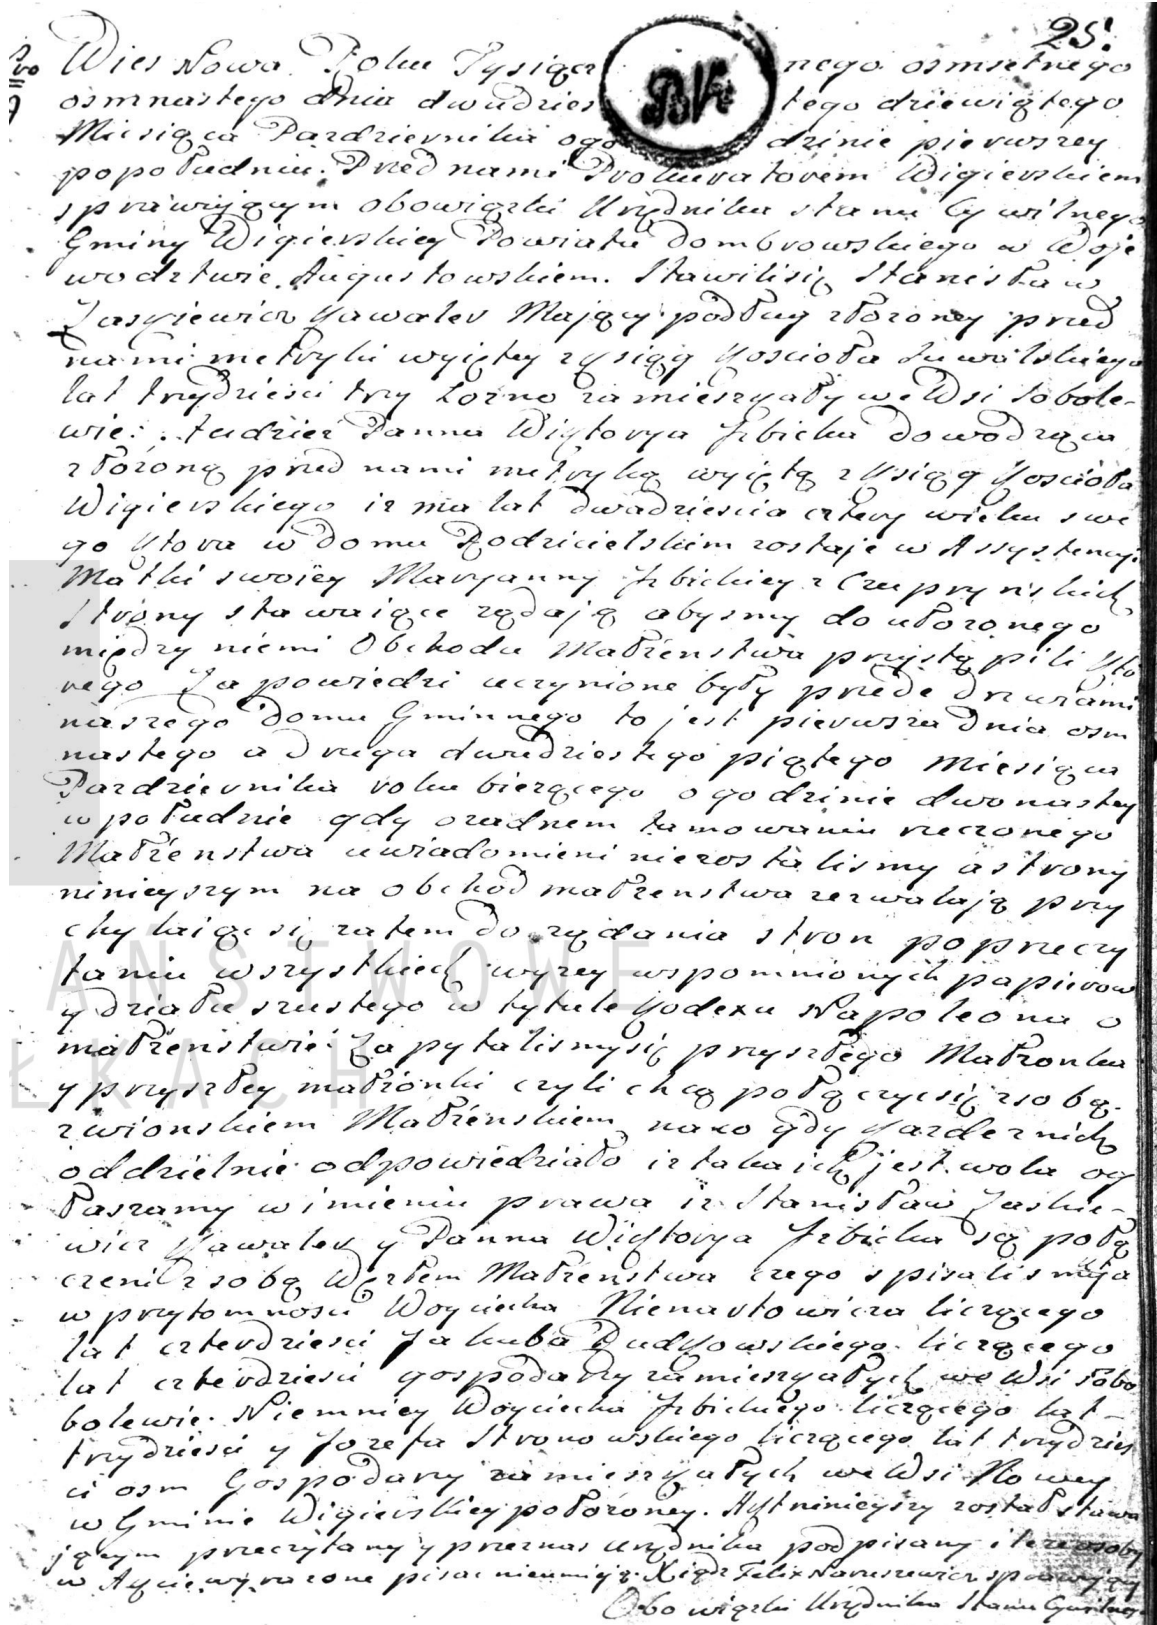 25.
Nro
9
Wies Nowa. Roku Tysiącz nego osmsetnego
osmnastego dnia dwudzies tego dziewiątego
Miesiąca Pazdziernika ogo dzinie pierwszey
popołudniu. Przed nami Prokuratorem Wigierskiem
sprawującym obowiązki Urzędnika stanu Cywilnego
Gminy Wigierskiey Powiatu Dombrowskiego w Woje
wodztwie Augustowskiem. Stawilisię Stanisław
Jaskiewicz Kawaler Mający podług złozoney przed
nami metryki wyiętey z Ksiąg Koscioła Suwalskiego
lat trzydziesci trzy Lozno zamieszkały we Wsi Sobole-
wie: . tudziez Panna Wiktorya Jzbicka dowodząca
złozoną przed nami metryką wyiętą z Ksiąg Koscioła
Wigierskiego iz ma lat dwadziescia cztery wieku swe
go Ktora w domu Rodzicielskim zostaje w Assystencyi
Matki swoiey Maryanny Jzbickiey z Czupryńskich
Strony stawaiące ządają abysmy do ułozonego
między niemi Obchodu Małzeństwa przystąpili Kto
rego Zapowiedzi uczynione były przede drzwiami
naszego domu Gminnego to jest pierwsza dnia osm
nastego a Druga dwudziestego piątego Miesiąca
Pazdziernika roku biezącego o godzinie dwonastey
w południe gdy o zadnem tamowaniu rzeczonego
Małzenstwa uwiadomieni niezostalismy a strony
ninieyszym na obchod małzenstwa zezwalają przy
chylaiąc się zatem do ządania stron po przeczy
taniu wszystkich wyzey wspomnionych papierow
y działu szustego w tytule Kodexu Napoleona o
małzeństwie Zapytalismysię przyszłego Małzonka
y przyszłey małzonki czyli chcą połączycsię z sobą
zwionskiem Małzeńskiem naco gdy Kazdez nich
oddzielnie odpowiedziało iz taka ich jest wola og
łaszamy w imieniu prawa iz Stanisław Jaskie-
wicz Kawaler y Panna Wiktorya Jzbicka są połą
czeni z sobą Węzłem Małzeństwa czego spisalismy Akt
w przytomnosci Woyciecha Nienartowicza liczącego
lat czterdziesci Jakuba Rudkowskiego liczącego
lat czterdziesci gospodarzy zamieszkałych we Wsi Sobo
bolewie. Niemniey Woyciecha Jzbickiego liczącego lat
trzydziesci y Jozefa Stronowskiego liczącego lat trzydzies
ci osm Gospodarzy zamieszkałych we Wsi Nowey
w Gminie Wigierskiey połozoney. Akt ninieyszy został stawa
jącym przeczytany y przeznas urzędnika podpisany
w Akcie wyrazone pisac nieumięią. Xiądz Felix Naruszewicz sprawuiący
Obowiązki Urzędnika Stanu Cywilnego
AŃSTWOWE
ŁKACH